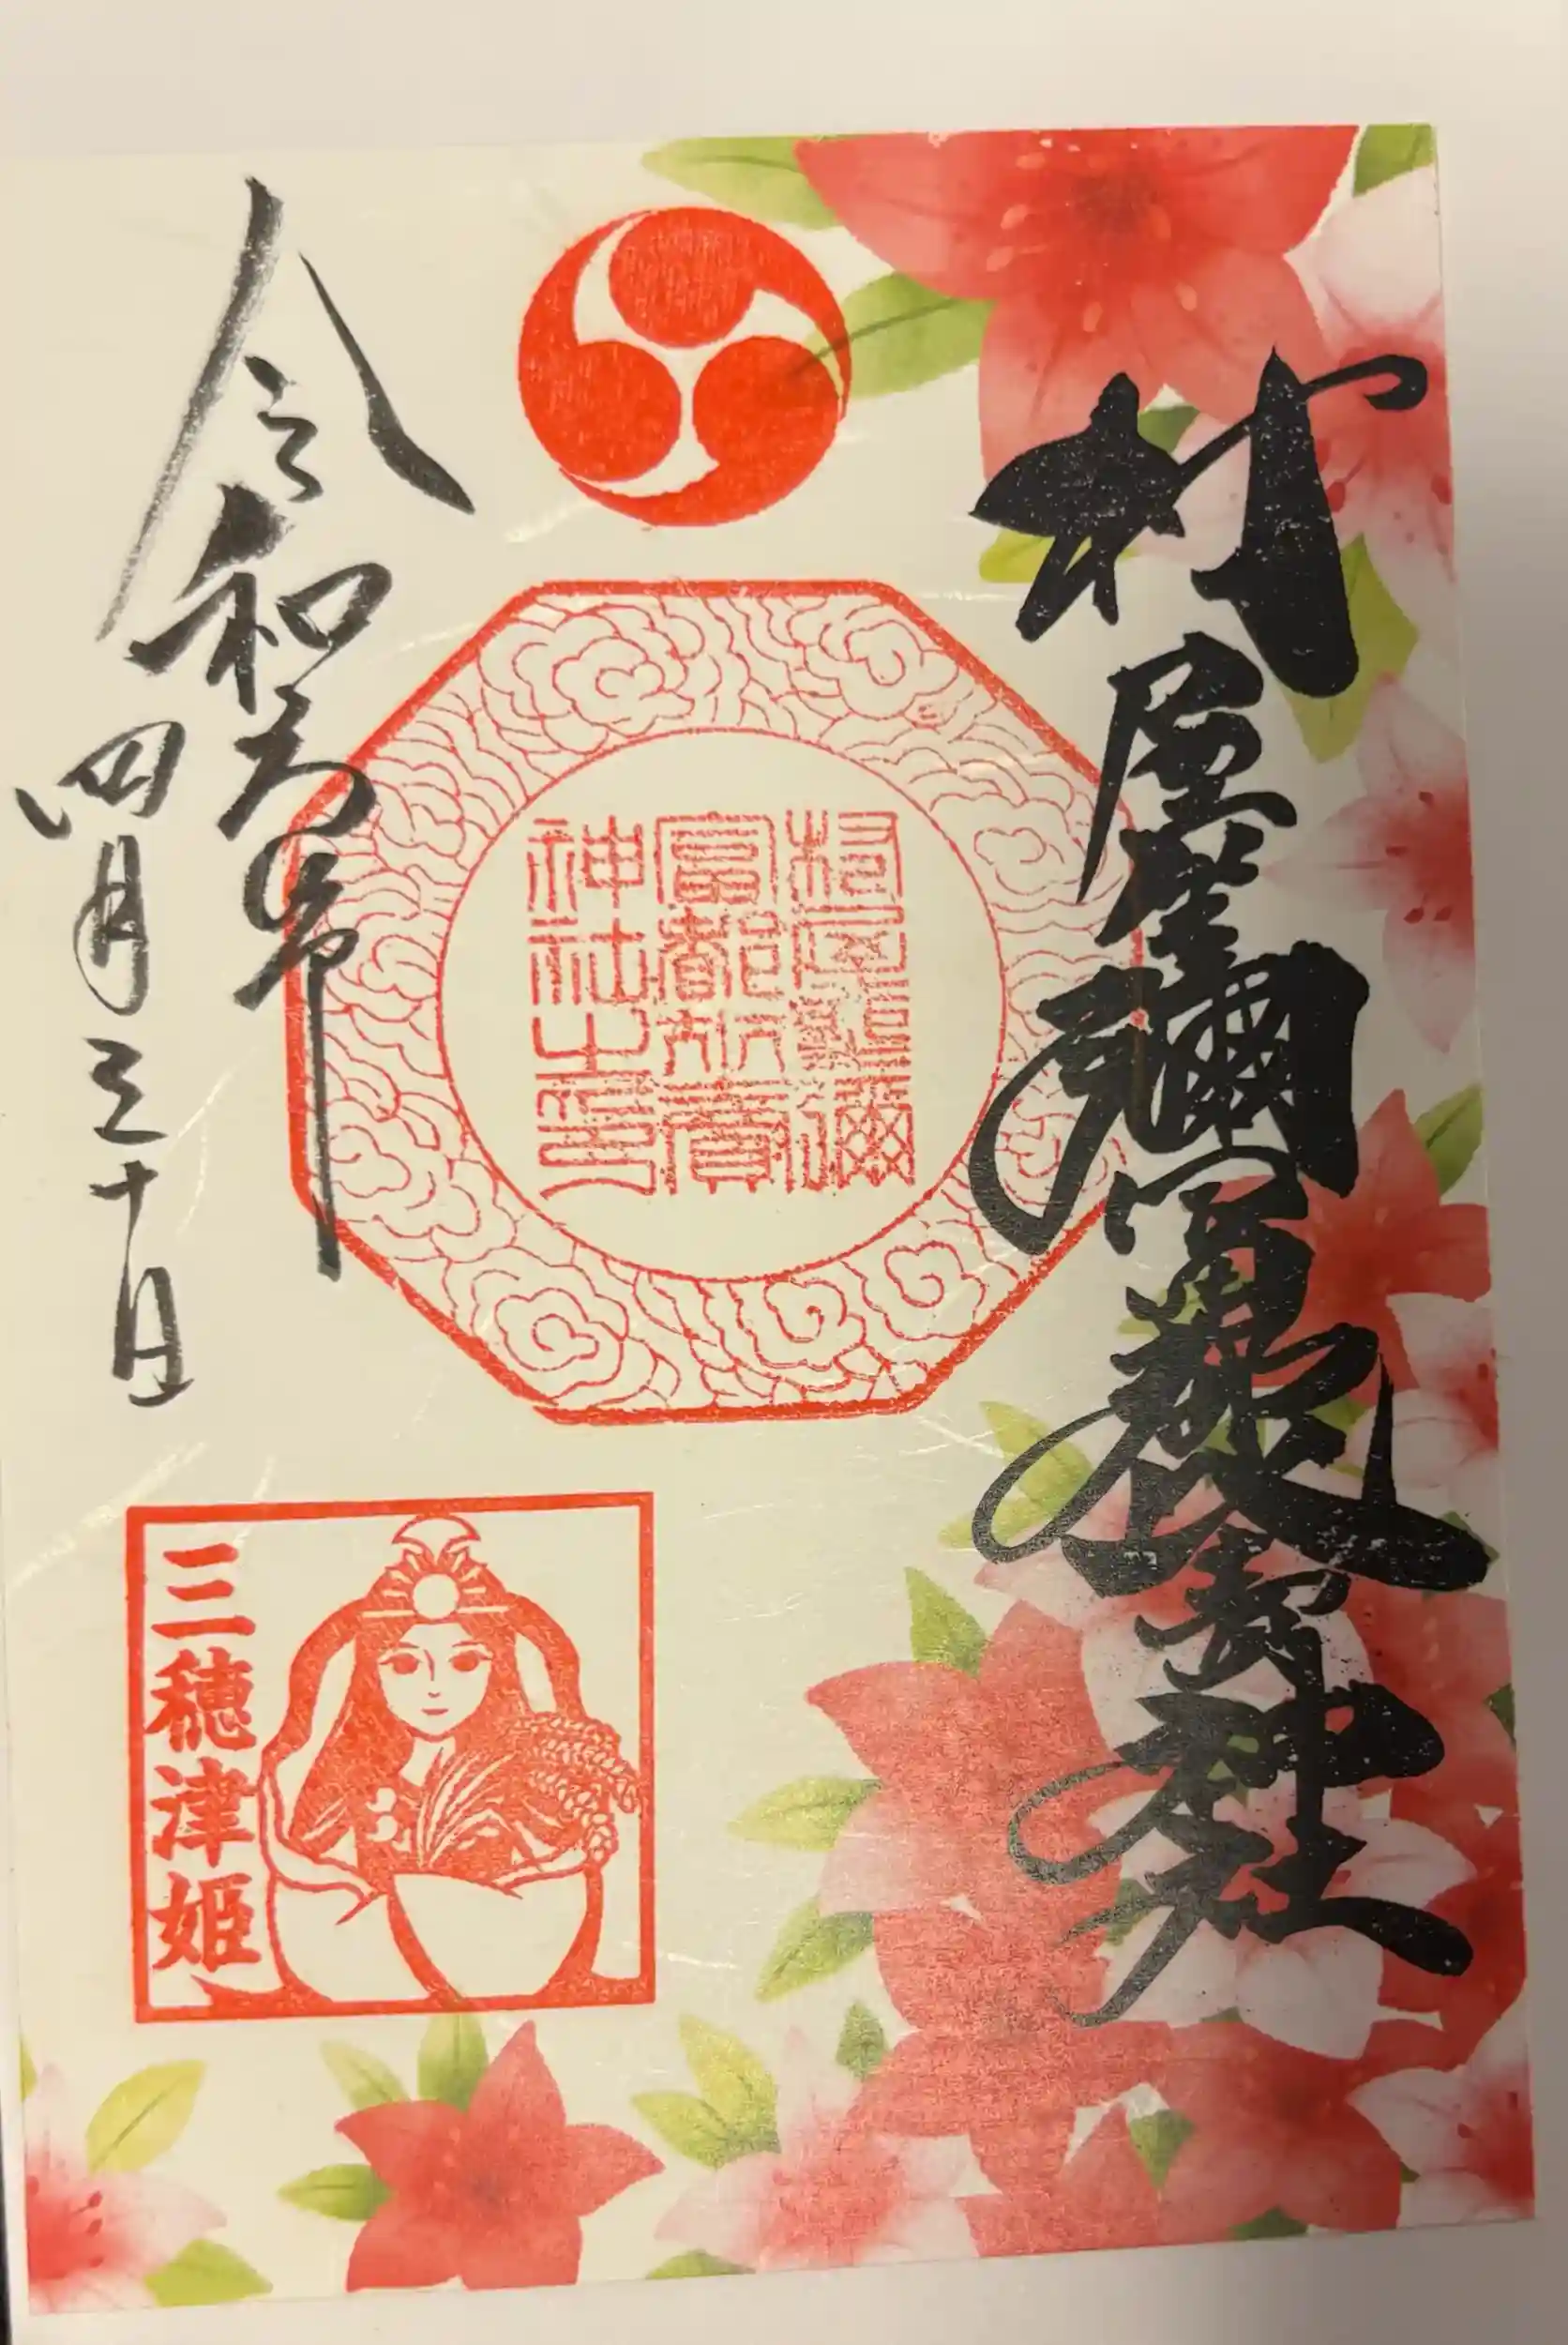 村屋坐彌冨都比賣神社
村屋坐彌
富都比賣
神社之印
令和五年
四月三十日
三穂津姫